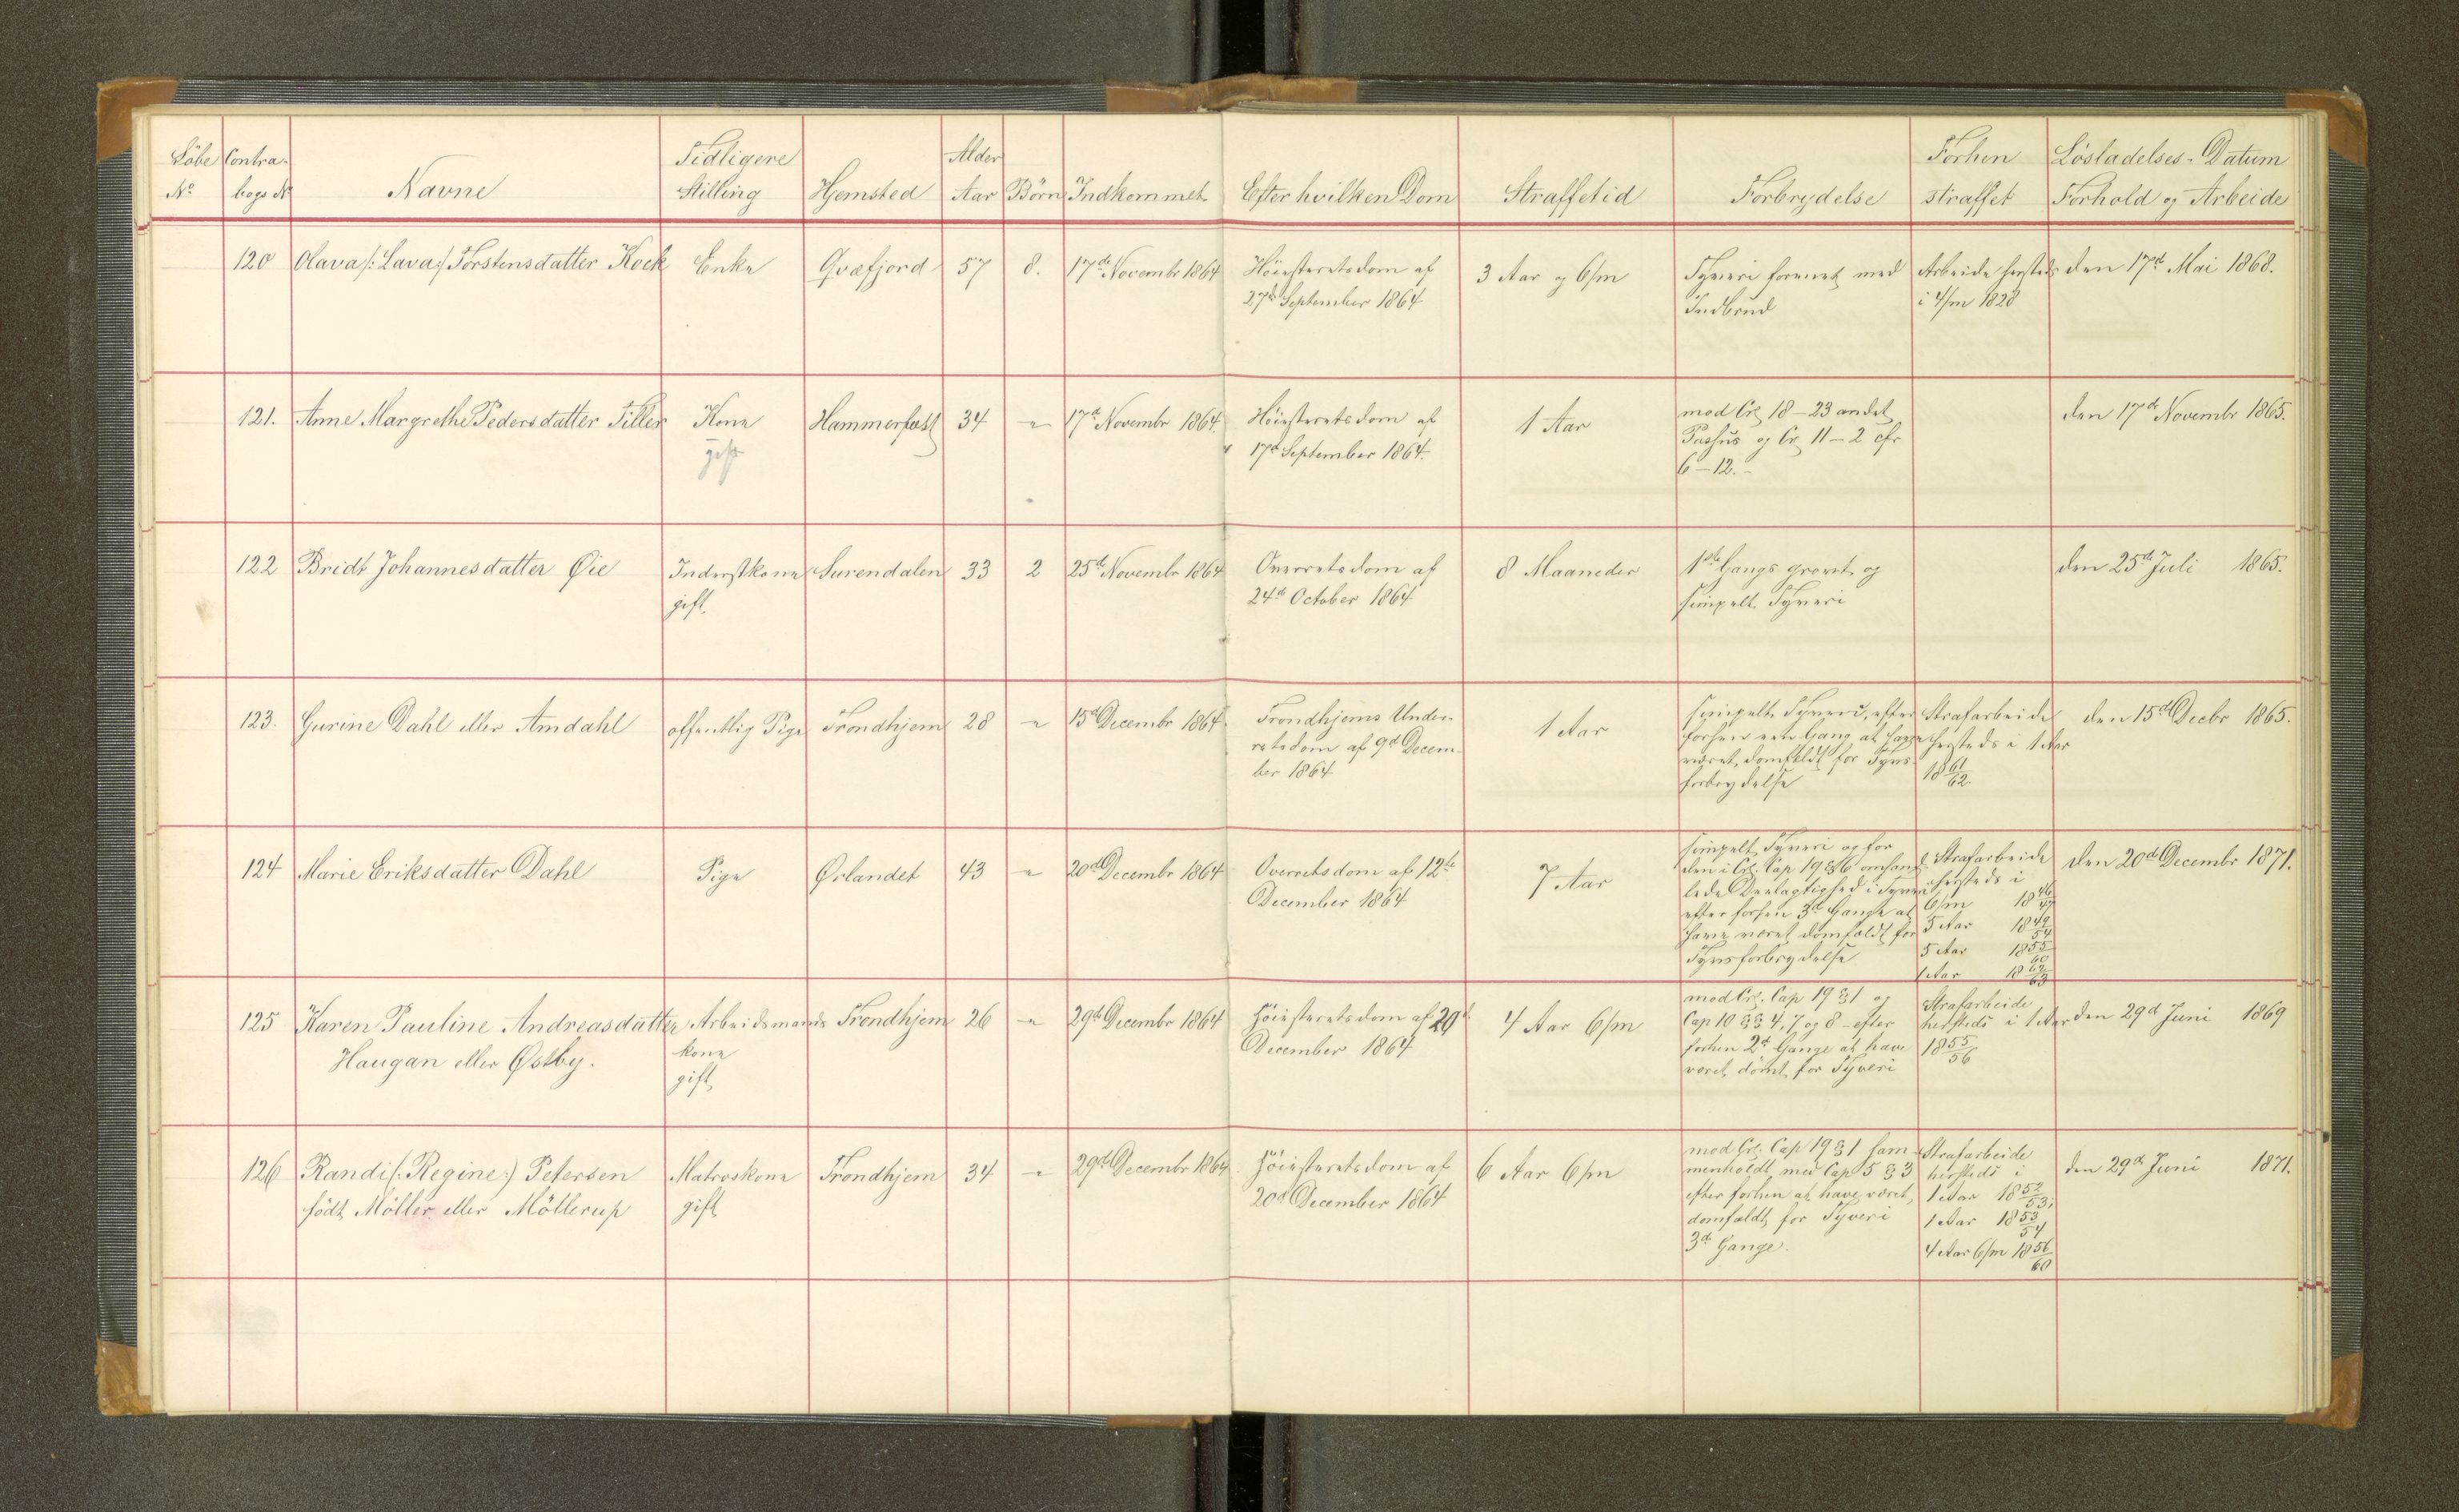 Löbe Contra- Tidligere Alder Forhen Lösladelses-Datum
No bogs No Navne Stilling Hjemsted Aar Börn Indkommet Efter hvilken Dom Straffetid Forbrydelse straffet Forhold og Arbeide
120 Olava /: Lava :/ Torstensdatter Kock Enke Qvæfjord 57 8. 17de Novembr 1864 Höiesteretsdom af 3 Aar og 6/m Tyveri forenet med Arbeide hersteds den 17de Mai 1868.
27de September 1864 Indbrud i 4/m 1828
121. Anne Margrethe Pedersdatter Tiller Kone Hammerfest 34 " 17de Novembr 1864. Höiesteretsdom af 1 Aar mod Crl 18-23 andet den 17de Novembr 1865.
gift 17de September 1864. og Crl 11-2 cfr
6-12.-
122 Bridt Johannesdatter Øie Inderstkone Surendalen 33 2 25de Novembr 1864 Overretsdom af 8 Maaneder 1ste Gangs grovt og den 25de Juli 1865.
gift. 24de October 1864 simpelt Tyveri
123. Gurine Dahl eller Amdahl offentlig Pige Trondhjem 28 " 15de Decembr 1864 Trondhjems Under- 1 Aar simpelt Tyveri, efter Strafarbeide den 15de Decbr 1865.
retsdom af 9d Decem- forhen een Gang at have hersteds i 1 Aar
ber 1864 været domfældt for Tyvs- 18 61/62
forbrydelse
124 Marie Eriksdatter Dahl Pige Ørlandet 43 " 20de Decembr 1864 Overretsdom af 12te 7 Aar simpelt Tyveri og for Strafarbeide den 20de Decembr 1871.
December 1864 den i Crl. Cap 19 § 6 omhand- hersteds i
lede Deelagtighed i Tyveri 6/m 18 46/47
efter forhen 3de Gange at 5 Aar 18 49/54
have været domfældt for 5 Aar 18 55/60
Tyvsforbrydelse 1 Aar 18 62/63
125 Karen Pauline Andreasdatter Arbeidsmands Trondhjem 26 " 29de Decembr 1864 Höiesteretsdom af 29d 4 Aar 6/m mod Crl. Cap 19 § 1 og Strafarbeide den 29d Juni 1869
Haugan eller Østby. kone December 1864 Cap 10 §§ 4, 7 og 8 - efter hersteds i 1 Aar
gift forhen 2de Gange at have 18 55/56
været dömt for Tyveri
126 Randi /: Regine :/ Petersen Matroskone Trondhjem 34 " 29de Decembr 1864 Höiesteretsdom af 6 Aar 6/m mod Crl. Cap 19 § 1 sam- Strafarbeide den 29de Juni 1871.
födt Möller eller Möllerup gift 20de December 1864 menholdt med Cap 5 § 3 hersteds i
efter forhen at have været 1 Aar 18 52/53;
domfældt for Tyveri 1 Aar 18 53/54
3de Gange. 4 Aar 6/m 18 56/60